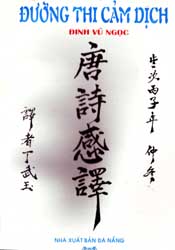 ĐƯỜNG THI CẢM DỊCH
ĐINH VŨ NGỌC
唐詩感譯
丙子年
譯者丁武玉
NHÀ XUẤT BẢN ĐÀ NẴNG